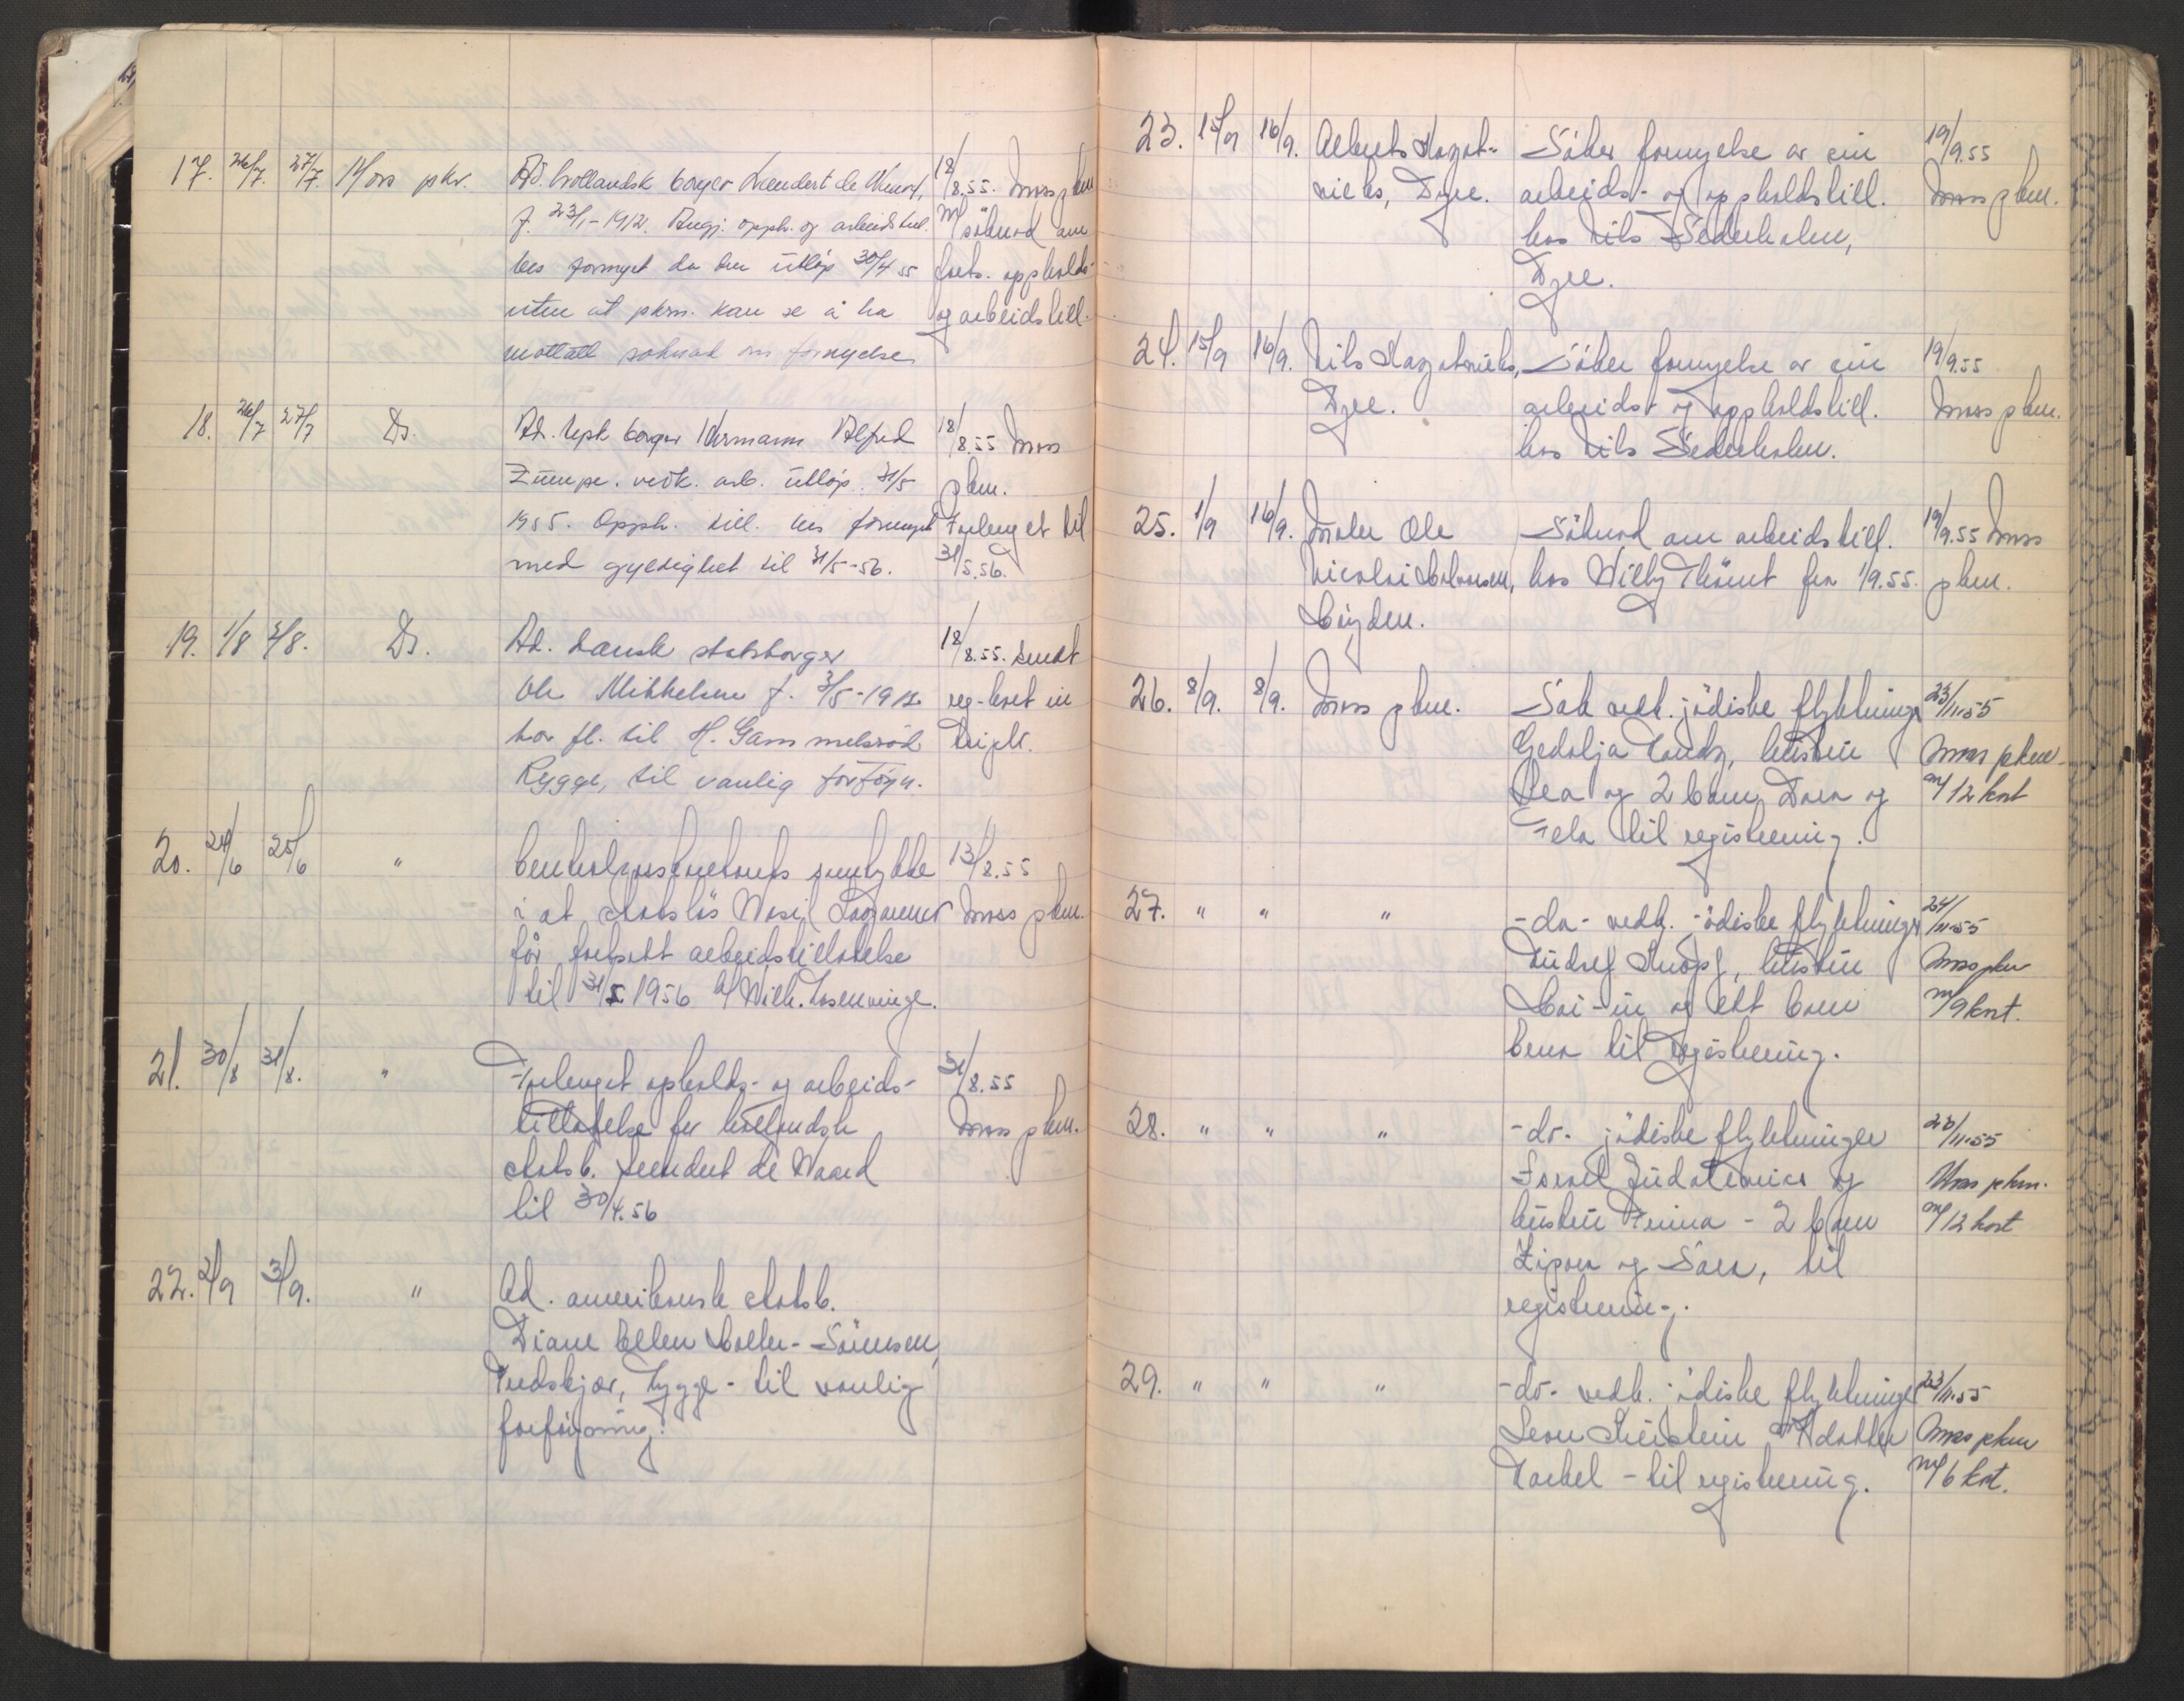 17. 26/7. 27/7. Moss pkr. Ad. hollandsk borger Leendert de
f. 23/1-1912. Angj. opph. og arbeidstill.
bes fornyet da den utløp 30/4 55
uten at pkm. kan se å ha
mottatt søknad om fornyelse
18/8.55. Moss pkm.
m/ søknad om
forts. oppholds-
og arbeidstill.
18. 26/7 27/7 Do. Ad. tysk borger Hermann Alfred
Zumpe. vedk. arb. utløp 31/5
1955. Opph. till. bes fornyet
med gyldighet til 31/5-56.
18/8.55 Moss
pkm.
Forlenget til
31/5.56.
19. 1/8 2/8. Do. Ad. dansk statsborger
Ole Mikkelsen f. 3/5-19
har fl. til H. Gammelsrød
Rygge, til vanlig forføyn.
18/8.55. sendt
reg-kort
20. 24/6 25/6 " Centralpasskontorets samtykke
i at statsløs Wasil
får fortsatt arbeidstillatelse
til 31/5 1956 h/ Wilh. Rosenvinge.
13/8.55
Moss pkm.
21. 30/8 31/8. " Forlenget opholds- og arbeids-
tillatelse for hollandsk
statsb. Leendert de Waard
til 30/4.56
31/8.55
Moss pkm.
22. 2/9 3/9. " Ad. amerikansk statsb.
Diane Ellen Coller-Sörensen,
Rygge - til vanlig
forføyning.
23. 15/9 16/9. Alberts Kazat-
nieks, Dyre.
Söker fornyelse av sin
arbeidst- og oppholdstill.
hos Nils Sederholm,
Dyre.
19/9.55
Moss pkm.
24. 15/9 16/9. Nils Kazatnieks,
Dyre.
Söker fornyelse av sin
arbeidst og oppholdstill.
hos Nils Sederholm.
19/9.55
Moss pkm.
25. 1/9 16/9. Maler Ole
Nicolai
Söknad om arbeidstill.
hos Willy fra 1/9.55.
19/9.55 Moss
pkm.
26. 8/9. 8/9. Moss pkm. Sak vedk. jödiske flyktninger
Gedalja hustru
Lea og 2 barn Dora og
Fela til registrering.
23/11-55
Moss pkm
m/ 12 kort
27. " " " -do- vedk. jödiske flyktninger
Rudolf Knöpf, hustru
og ett barn
til registrering.
24/11-55
Moss pkm
m/ 9 kort.
28. " " " -do- jödiske flyktninger
Israel og
hustru - 2 barn
Zipora og Sara, til
registrering.
23/11-55
Moss pkm.
m/ 12 kort
29. " " " -do- vedk. jödiske flyktninger
Leon m/ datter
Rachel - til registrering.
23/11-55
Moss pkm
m/ 6 kort.